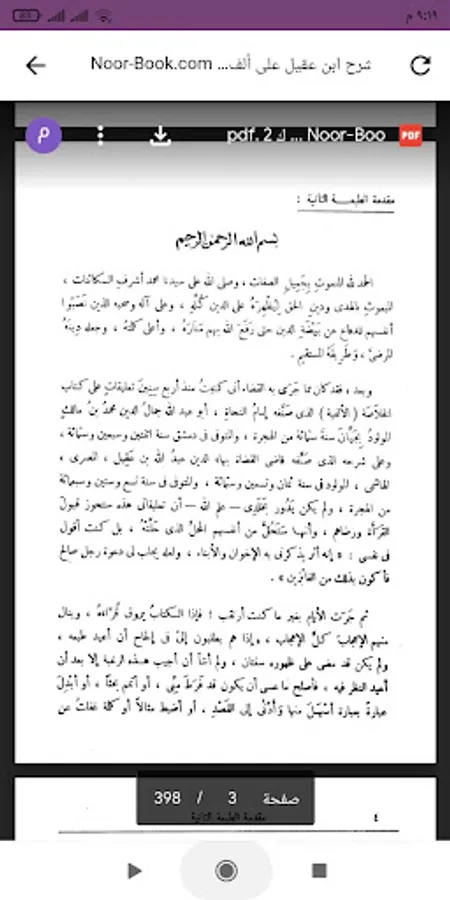 ٩:١٩ م
شرح ابن عقيل على ألف... Noor-Book.com
م
Noor-Boo ... ك 2 .pdf
PDF
مقدمة الطبعة الثانية :
بسم الله الرحمن الرحيم
الحمد لله المنعوت بجَمِيلِ الصفات ، وصلى الله على سيدنا محمد أشرفِ الكائنات ،
المبعوث بالهدى ودينِ الحق لِيُظْهِرَهُ على الدين كُلِّهِ ، وعلى آله وصحبه الذين نَصَبُوا
أنفسهم للدفاع عن بَيْضَةِ الدين حتى رَفَعَ الله بهم مَنَارَهُ ، وأعلى كلمتَهُ ، وجعله دِينَهُ
المرضىَّ ، وَطَرِيقَهُ المستقيم .
وبعد ، فقد كان مما جَرَى به القضاء أنى كتبتُ منذ أربع سِنِينَ تعليقاتٍ على كتاب
الخلاصَةِ ( الألفية ) الذى صَنَّفه إمامُ النحاةِ ، أبو عبد الله جمالُ الدين محمدُ بنُ مالكٍ
المولودُ بِجَيَّانَ سنةَ ستمائة من الهجرة ، والمتوفى فى دمشق سنة اثنتين وسبعين وستمائة ،
وعلى شرحه الذى صنَّفه قاضى القضاة بهاء الدين عبدُ الله بن عَقِيل ، المصرى ،
الهاشمى ، المولود فى سنة ثمان وتسعين وستمائة ، والمتوفى فى سنة تسع وستين وسبعمائة
من الهجرة ، ولم يكن يَدُور بِخَلَدِى — علم الله — أن تعليقاتى هذه ستحوز قبولَ
القرَّاء ورضاهم ، وأنها ستَحُلُّ من أنفسهم المحلَّ الذى حَلَّتْهُ ، بل كنت أقول
فى نفسى : « إنه أثر يذكرنى به الإخوان والأبناء ، ولعله يجلب لى دعوة رجل صالح
فأكون بذلك من الفائزين » .
ثم جَرَت الأيام بغير ما كنت أرتقب ؛ فإذا الكتابُ يروق قُرَّاءَهُ ، وينال
منهم الإعجابَ كلَّ الإعجاب ، وإذا هم يطلبون إلىَّ فى إلحاح أن أعيد طبعه ،
ولم يكن قد مضى على ظهوره سنتان ، ولم أشأ أن أجيب هذه الرغبة إلا بعد أن
أعيد النظر فيه ، فأصلح ما عسى أن يكون قد فَرَطَ مِنِّى ، أو أتمم بحثاً ، أو أُبْدِلَ
عبارةً بعبارة أَسْهَلَ منها وَأَدْنَى إلى القَصْدِ ، أو أضبط مثالاً أو كلمة غفلتُ عن
صفحة 3 / 398
٤
مقدمة الطبعة الثانية